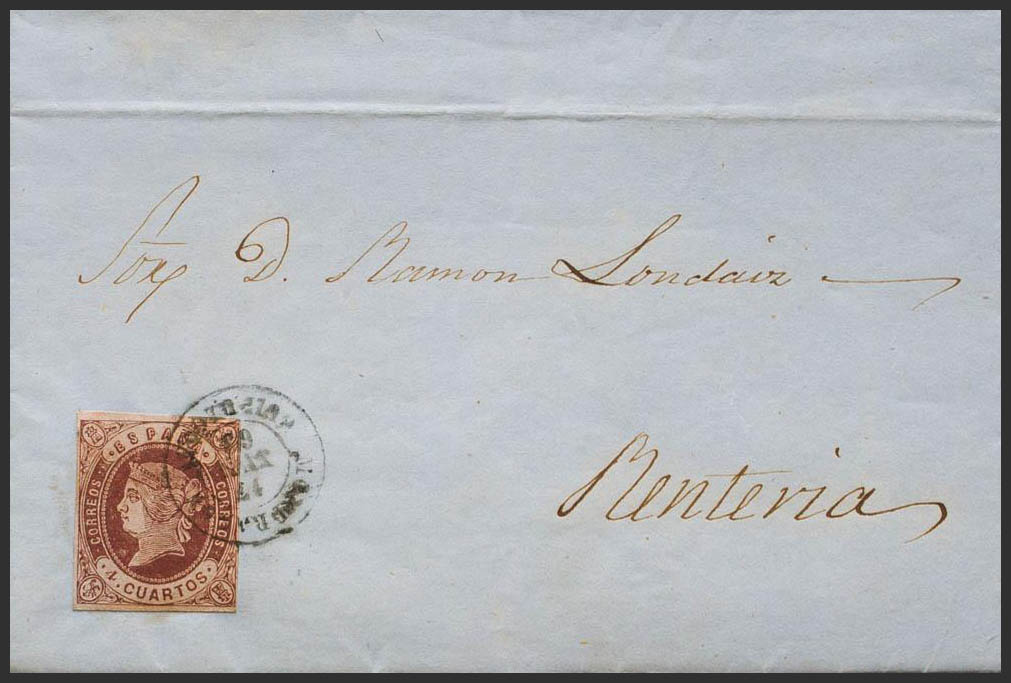 Sor D. Ramon Londaiz
Renteria
ESPAÑA
CORREOS
CORREOS
4 CUARTOS